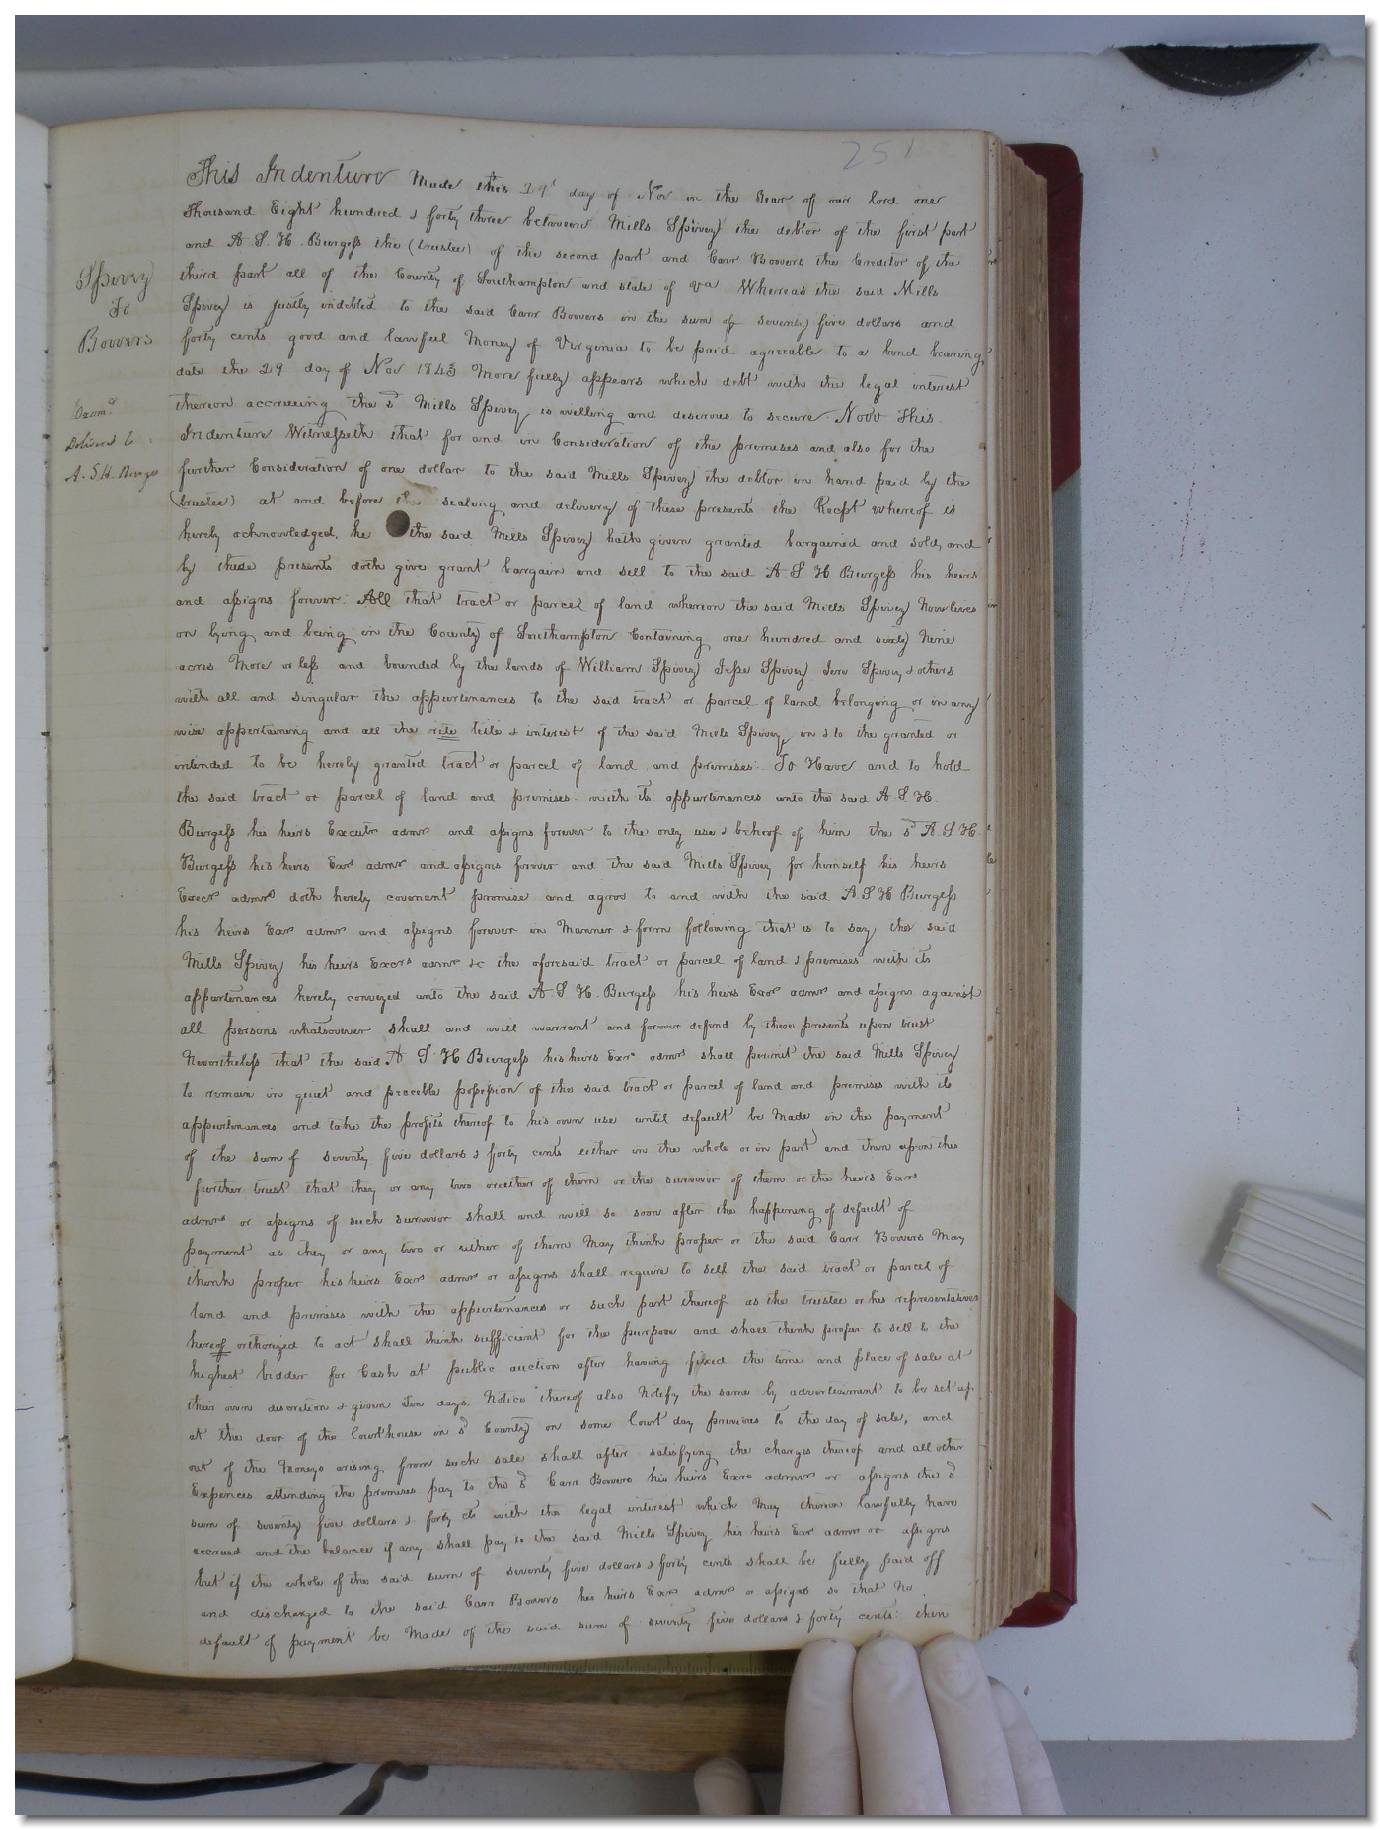 251
This Indenture Made this 29th day of Nov in the Year of our lord one
Thousand Eight hundred & forty three between Mills Spivey the debtor of the first part
and A. S. H. Burgess the (trustee) of the second part and Carr Bowers the Creditor of the
third part all of the County of Southampton and state of Va Whereas the said Mills
Spivey is justly indebted to the said Carr Bowers in the sum of seventy five dollars and
forty cents good and lawful Money of Virginia to be paid agreeable to a bond bearing
date the 29 day of Nov 1843 More fully appears which debt with the legal interest
thereon accrueing the sd Mills Spivey is willing and desirous to secure Now This
Indenture Witnesseth that for and in Consideration of the premises and also for the
further Consideration of one dollar to the said Mills Spivey the debtor in hand paid by the
(trustee) at and before the sealing and delivery of these presents the Recpt whereof is
hereby acknowledged, he the said Mills Spivey hath given granted bargained and sold, and
by these presents doth give grant bargain and sell to the said A S H Burgess his heirs
and assigns forever. All that tract or parcel of land whereon the said Mills Spivey Now lives
on lying and being in the County of Southampton Containing one hundred and sixty Nine
acres More or less and bounded by the lands of William Spivey Jesse Spivey Spivey & others
with all and singular the appurtenances to the said tract or parcel of land belonging or in any
wise appertaining and all the rite title & interest of the said Mills Spivey in & to the granted or
intended to be hereby granted tract or parcel of land and premises. To Have and to hold
the said tract or parcel of land and premises with its appurtenances unto the said A. S. H.
Burgess his heirs Executr admr and assigns forever to the only use & behoof of him the sd A. S H
Burgess his heirs Exr admr and assigns forever and the said Mills Spivey for himself his heirs
Execr admrs doth hereby covenent promise and agree to and with the said A. S H Burgess
his heirs Exr admr and assigns forever in Manner & form following that is to say the said
Mills Spivey his heirs Excrs admr &c the aforesaid tract or parcel of land & premises with its
appurtenances hereby conveyed unto the said A. S. H. Burgess his heirs Exor admr and assigns against
all persons whatsoever shall and will warrant and forever defend by these presents upon trust
Nevertheless that the said A S H Burgess his heirs Exr admrs shall permit the said Mills Spivey
to remain in quiet and peceble possession of the said tract or parcel of land and premises with its
appurtenances and take the profits thereof to his own use until default be Made in the payment
of the sum of seventy five dollars & forty cents either in the whole or in part and then upon this
further trust that they or any two or either of them or the survivor of them or the heirs Exrs
admrs or assigns of such survivor shall and will so soon after the happening of default of
payment as they or any two or either of them May think proper or the said Carr Bowers May
think proper his heirs Exr admr or assigns shall require to sell the said tract or parcel of
land and premises with the appurtenances or such part thereof as the trustee or his representatives
hereof orthorized to act shall think sufficient for the purpose and shall think proper to sell to the
highest bidder for Cash at public auction after having fixed the time and place of sale at
their own discretion & given Ten days Notice thereof also Notify the same by advertisement to be set up
at the door of the Courthouse in sd County on some Court day previous to the day of sale, and
out of the Moneys arising from such sale shall after satisfying the charges thereof and all other
Expences attending the premises pay to the sd Carr Bowers his heirs Exrs admrs or assigns the sd
sum of seventy five dollars & forty cts with the legal interest which May thereon lawfully have
accrued and the balance if any shall pay to the said Mills Spivey his heirs Exr admr or assigns
but if the whole of the said sum of seventy five dollars & forty cents shall be fully paid off
and discharged to the said Carr Bowers his heirs Exr admr or assigns so that No
default of payment be Made of the said sum of seventy five dollars & forty cents: then
Spivey
To
Bowers
Examd
Deliverd to
A. S H. Burges